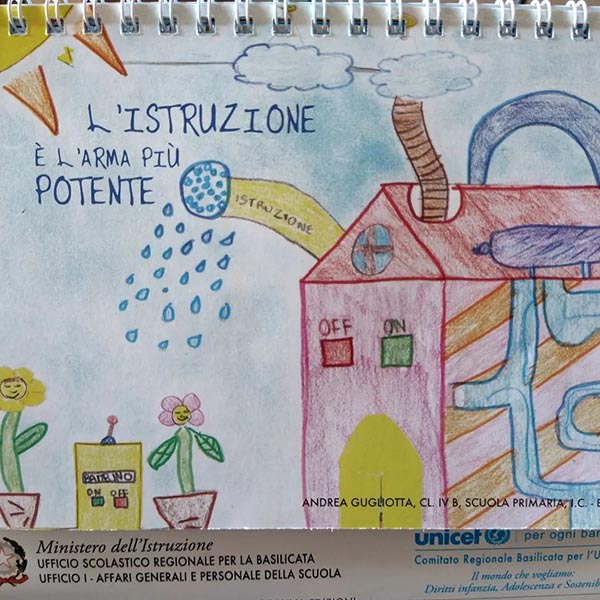 L'ISTRUZIONE
È L'ARMA PIÙ
POTENTE
ISTRUZIONE
OFF ON
BAMBINO
ON OFF
ANDREA GUGLIOTTA, CL. IV B, SCUOLA PRIMARIA, I.C. -
Ministero dell'Istruzione
UFFICIO SCOLASTICO REGIONALE PER LA BASILICATA
UFFICIO I - AFFARI GENERALI E PERSONALE DELLA SCUOLA
unicef per ogni
Comitato Regionale Basilicata per l'
Il mondo che vogliamo:
Diritti infanzia, Adolescenza e